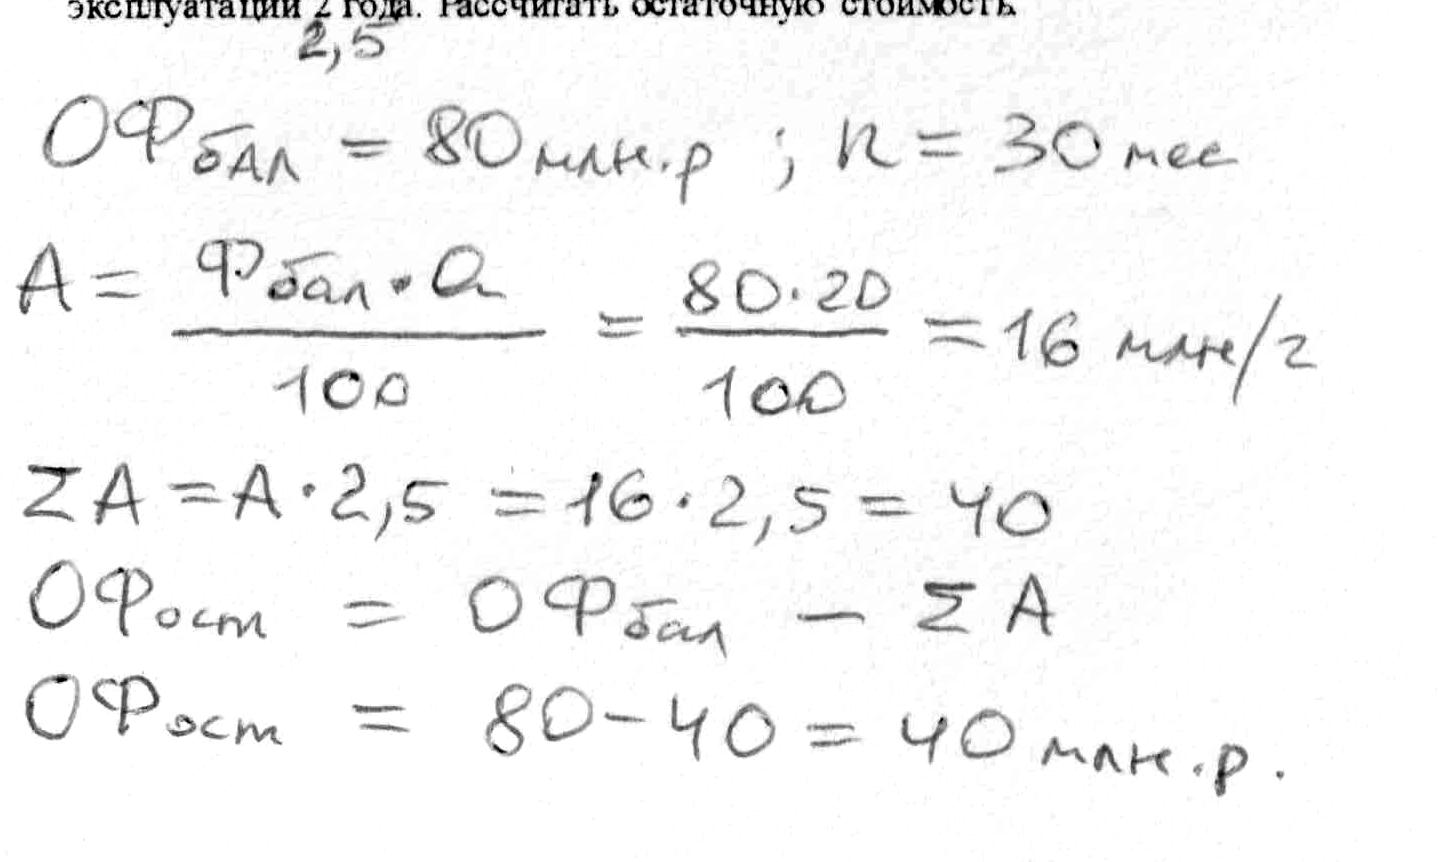 эксплуатации 2 года. Рассчитать остаточную стоимость.
2,5
ОФбал = 80 млн.р ; n = 30 мес
A = Фбал · a / 100 = 80 · 20 / 100 = 16 млн/г
ΣA = A · 2,5 = 16 · 2,5 = 40
ОФост = ОФбал – ΣA
ОФост = 80 – 40 = 40 млн.р.